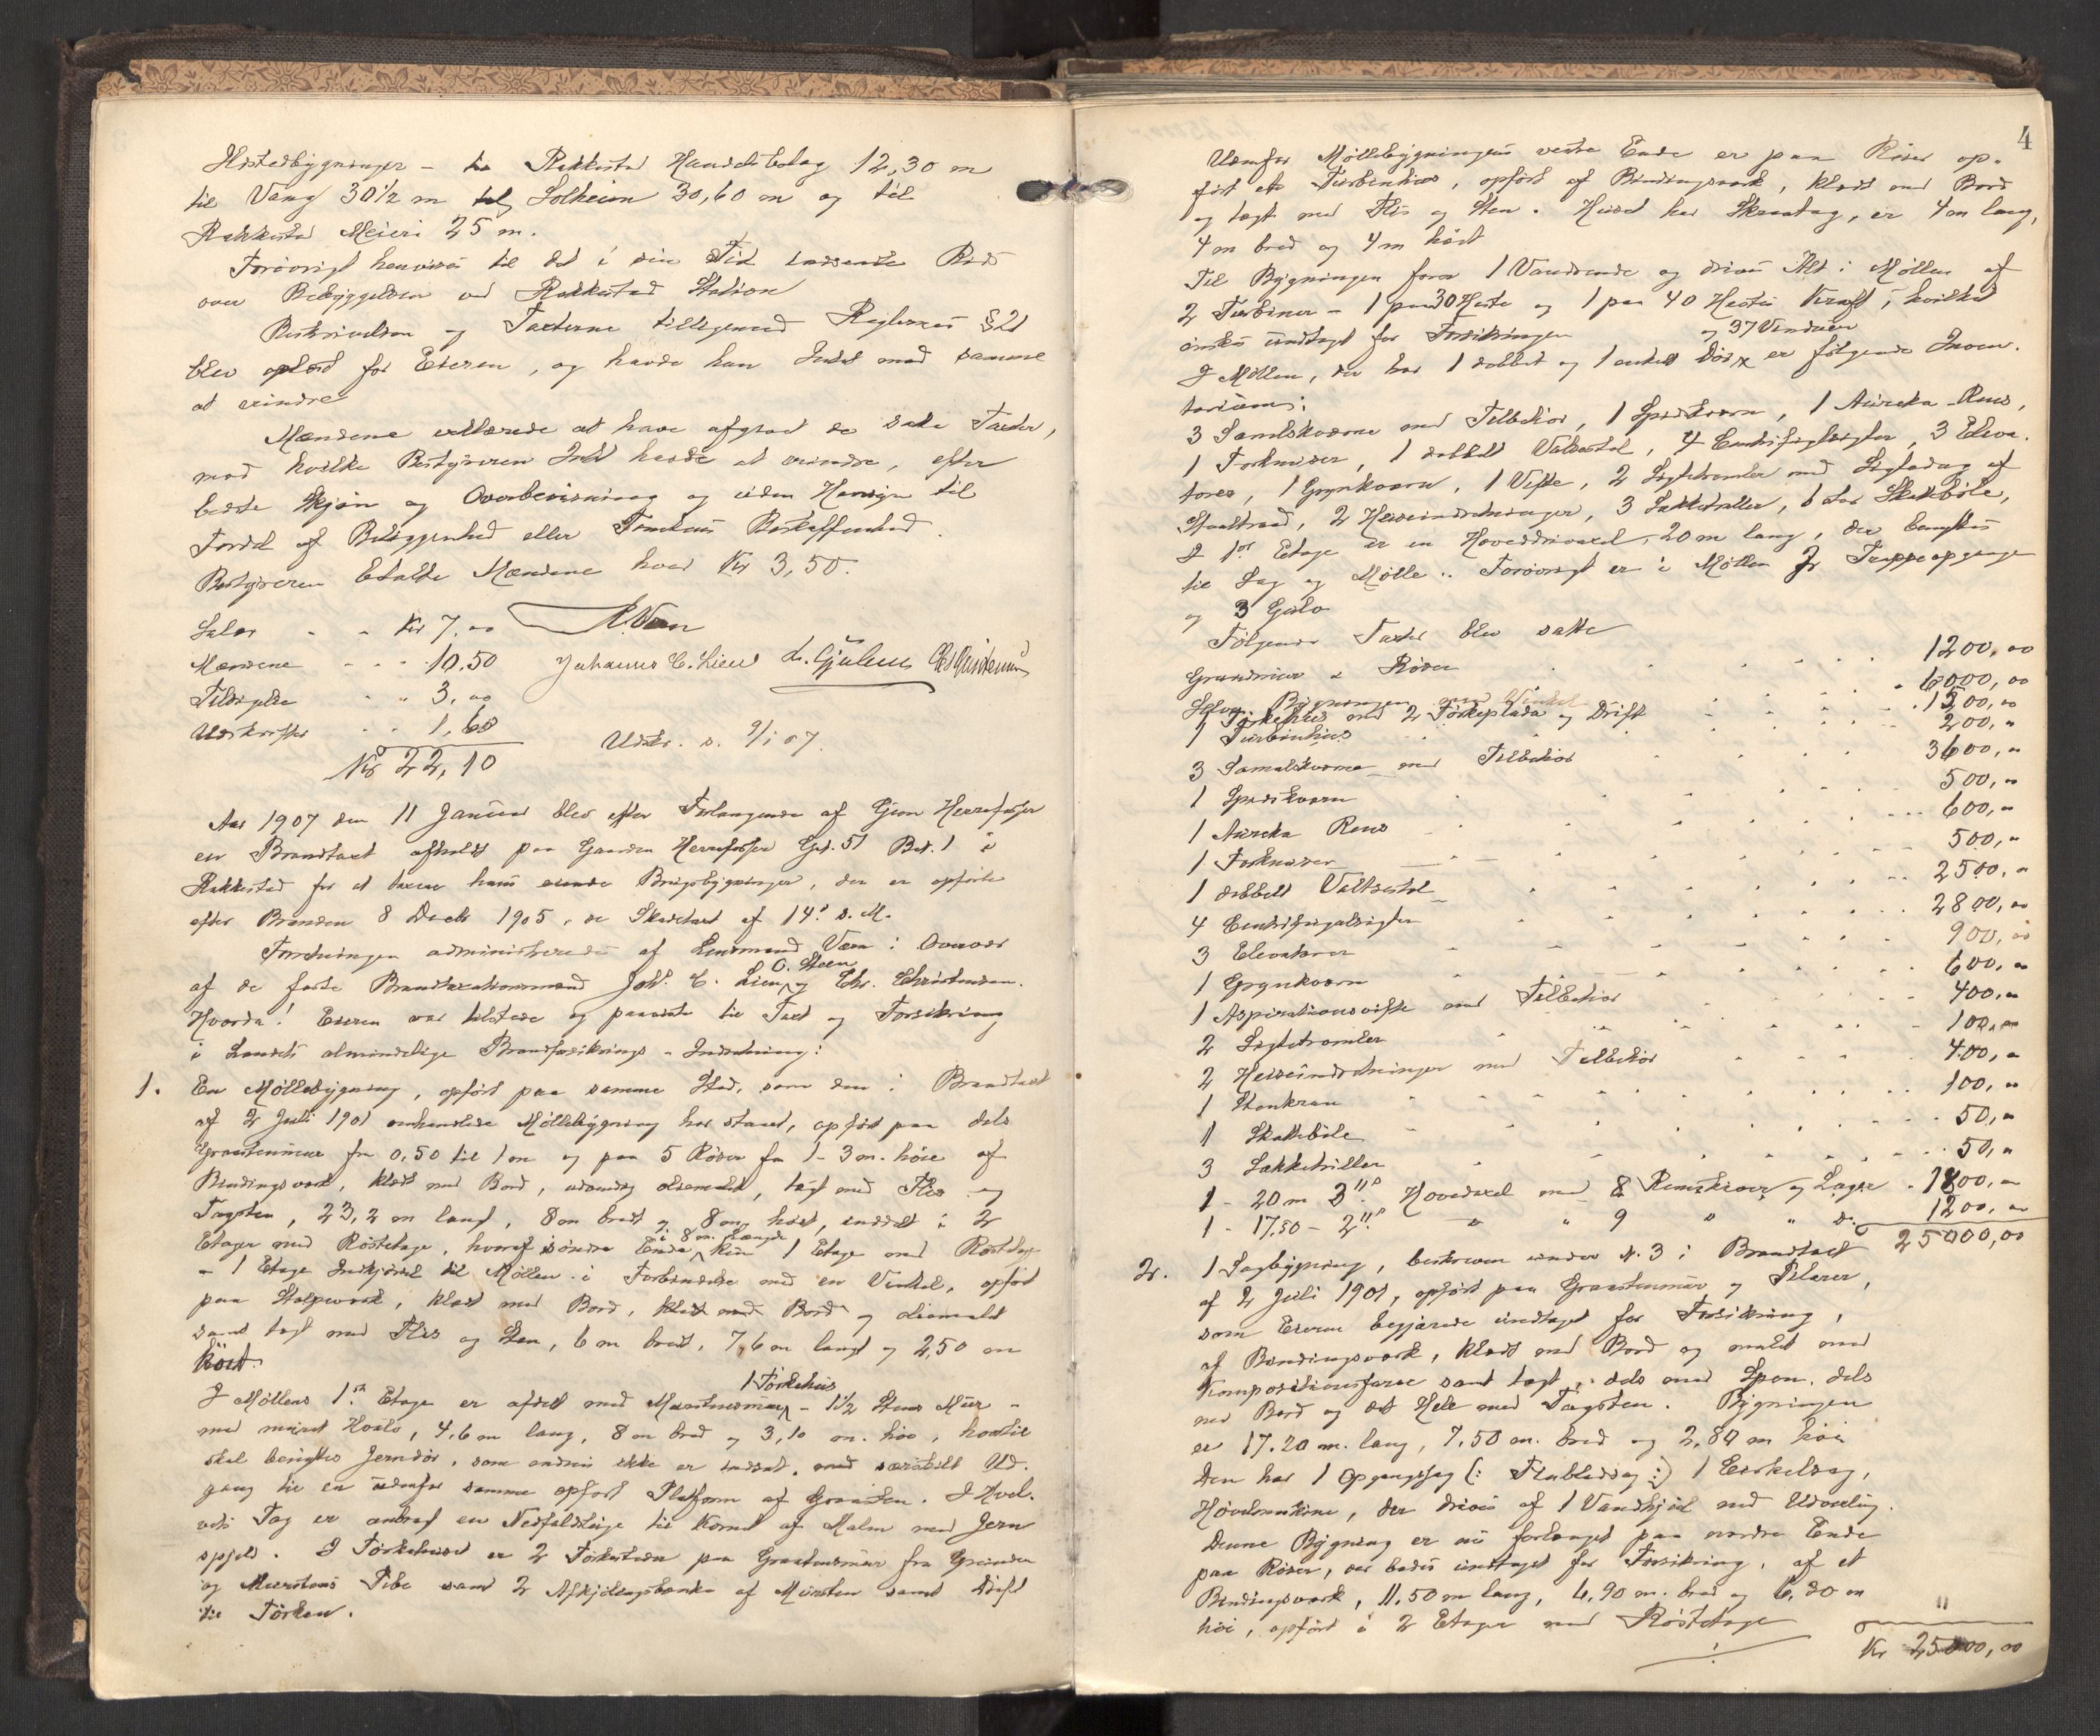 Hosstedbygninger – til Rakkestad Handelsbolag 12,30 m
til Vang 30 1/2 m til Solheim 30,60 m og til
Rakkestad Meieri 25 m.
Forøvrigt henvises til det i sin Tid indsendte Rids
over Bebyggelsen ved Rakkestad Station
Beskrivelsen og Taxterne tilligemed Reglernes § 21
blev oplæst for Eieren, og havde han Intet mod samme
at erindre
Mændene erklærede at have afgivet de satte Taxter,
mod hvilke Bestyreren Intet havde at erindre, efter
bedste Skjøn og Overbevisning og uden Hensyn til
Fordel af Beliggenhed eller Tomtens Beskaffenhed.
Bestyreren betalte Mændene hver Kr 3,50.
Salær - - Kr 7.00
Mændene - - - 10.50 Johannes C. Lien
Tilsigelse - - 3,00
Udskrifter - - 1,60
Kr 22,10 Udskr. d. 9/1 07.
Aar 1907 den 11 Januar blev efter Forlangende af Gjern Herrefosser
en Brandtaxt afholdt paa Gaarden Herrefosser Gd. 51 Bd. 1 i
Rakkestad for at taxere hans eiende Brugsbygninger, der er opførte
efter Branden 8 Decbr 1905, se Skadetaxt af 14. s. M.
Forretningen administreredes af Lensmand Veen i Overvær
O. Steen
af de faste Brandtaxationsmænd Joh. C. Lien og Chr. Christensen.
Hvorda! Eieren var tilstede og paaviste til Taxt og Forsikring
i Landets almindelige Brandforsikrings-Indretning:
1. En Møllebygning, opført paa samme Sted, som den i Brandtaxt
af 2 Juli 1901 omhandlede Møllebygning har staaet, opført paa dels
Graastensmur fra 0,50 til 1 m og paa 5 Røser fra 1-3 m. høie af
Bindingsverk, klædt med Bord, udvendig oliemalet, tægt med Flis og
Tagsten, 23,2 m langt, 8 m bredt og 8 m høit, inddelt i 2
i 8 m. Længde
Etager med Røstetage, hvoraf i søndre Ende kun 1 Etage med Røstetage
- 1 Etage Indkjørsel til Møllen i Forbindelse med en Vinkel, opført
paa Stolpeverk, klædt med Bord, klædt med Bord og oliemalt
samt tægt med Flis og Sten, 6 m bred, 7,6 m langt og 2,50 m
høit.
1 Tørkehus
I Møllens 1ste Etage er afdelt med Murstensmur - 1 1/2 Stens Mur -
med muret Hvælv, 4,6 m lang, 8 m bred og 3,10 m. høi, hvortil
skal benyttes Jerndør, som endnu ikke er indsat, med særskilt Ud-
gang til en udenfor samme opført Platform af Graasten. I Hvæl-
vets Tag er anbragt en Nedfaldsluge til Kornet af Malm med Jern
spjeld. I Tørkehuset er 2 Tørkesteder paa Graastensmur fra Grunden
og Murstens Pibe samt 2 Afkjølingsbænke af Mursten samt Drift
til Tørken.
4
Udenfor Møllebygningens vestre Ende er paa Røser op-
ført et Turbinhus, opført af Bindingsverk, klædt med Bord
og tægt med Flis og Sten. Huset har Skraatag, er 4 m lang,
4 m bred og 4 m høit
Til Bygningen fører 1 Vandrende og drives Alt i Møllen af
2 Turbiner - 1 paa 30 Heste og 1 paa 40 Hestes Kraft, hvilket
ønskes undtaget for Forsikringen
og 37 Vinduer
I Møllen, der har 1 dobbel og 1 enkelt Dør er følgende Inven-
tarium:
3 Samelskværne med Tilbehør, 1 Spidskværn, 1 Aureka-Rens,
1 Forknuser, 1 dobbelt Valsestol, 4 Centrifugalsigter, 3 Eleva-
torer, 1 Grynkværn, 1 Vifte, 2 Sigtetromler med Sigtedug af
Staaltraad, 2 Heiseindretninger, 3 Sakketraller, 1 stor Skalkebøle,
I 1ste Etage er en Hoveddrivaxel, 20 m lang, der benyttes
til Sag og Mølle. Forøvrigt er i Møllen 2 Trappeopgange
og 3 Gulve
Følgende Taxter blev satte
Grundmur & Røser 1200,00
Selve Bygningen med Vinkel 6000,00
1 Tørkehus med 2 Tørkeplader og Drift 1500,00
1 Turbinhus 200,"
3 Samelskværne med Tilbehør 3600,"
1 Spidskværn 500,"
1 Aureka Rens 600,"
1 Forknuser 500,"
1 dobbelt Valsestol 2500,"
4 Centrifugalsigter 2800,00
3 Elevatorer 900,00
1 Grynkværn 600,"
1 Aspirationsvifte med Tilbehør 400,"
2 Sigtetromler 100,00
2 Heiseindretninger med Tilbehør 400,"
1 Stenkran 100,"
1 Skalkebøle 50,"
3 Sakketriller 50,"
1 - 20 m 3"s Hovedaxel med 8 Remskiver og Lager 1800,"
1 - 17.50 - 2"s " " 9 " " do. 1200,"
25000,00
2. 1 Sagbygning, beskreven under N. 3 i Brandtaxt
af 2 Juli 1901, opført paa Graastensmur og Pilarer,
som Eieren begjærede undtaget for Forsikring,
af Bindingsverk, klædt med Bord og malet med
Kompositionsfarve samt tægt, dels med Spon, dels
med Bord og det Hele med Tagsten. Bygningen
er 17.20 m. lang, 7,50 m. bred og 2,80 m høi
Den har 1 Opgangssag (: Flabladsag :) 1 Cirkelsag,
Høvelmaskine, der drives af 1 Vandhjul med Udvexling.
Denne Bygning er nu forlænget paa nordre Ende
paa Røser, der bades undtaget for Forsikring, af et
Bindingsverk, 11.50 m lang, 4,90 m. bred og 6,30 m
høi, opført i 2 Etager med Røstetage
Kr 25000,00